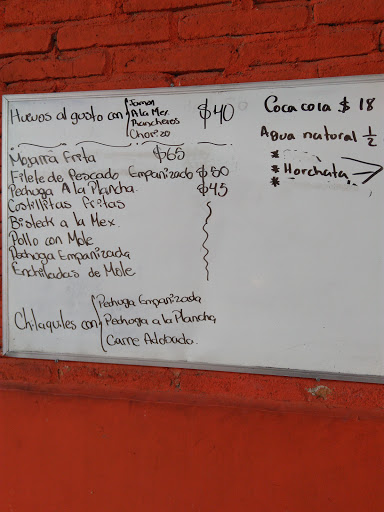 Huevos al gusto con
Jamon
A la Mex.
Rancheros
Chorizo
$40
Mojarra frita $65
Filete de Pescado Empanizado $50
Pechuga A la Plancha. $45
Costillitas fritas
Bisteck a la Mex.
Pollo con Mole
Pechuga Empanizada
Enchiladas de Mole
Chilaquiles con
Pechuga Empanizada
Pechuga a la Plancha
Carne Adobada.
Coca cola $18
Agua natural 1/2
*
* Horchata
*